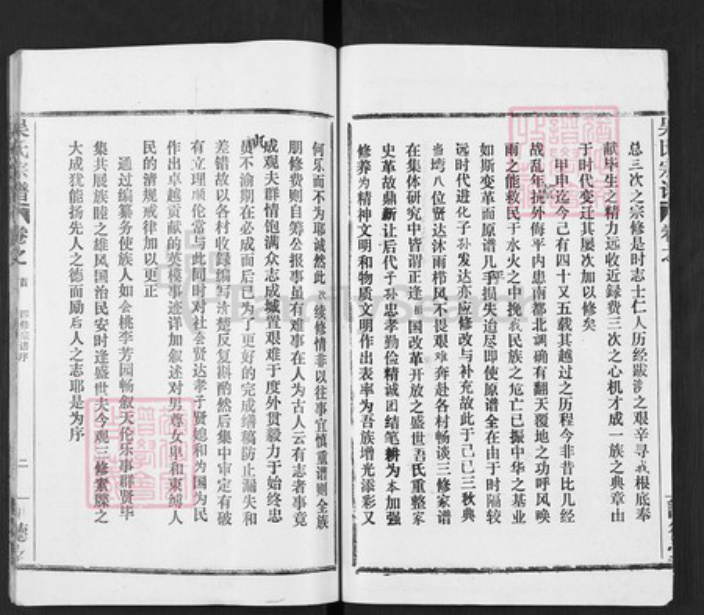 总三次之宗修是时志士仁人历经跋涉之艰辛寻我根底奉
献毕生之精力远收近録费三次之心机才成一族之典章由
于时代变迁其屡次加以修矣
甲申迄今己有四十又五载其越过之历程今非昔比几经
战乱年提外侮平内患南都北调确有翻天覆地之功呼风唤
雨之能救民于水火之中挽我民族之危亡已振中华之基业
如斯变革而原谱几乎损失迨尽即使原谱全在由于时隔较
远时代进化子孙发达亦应修改与补充故此于己巳三秋典
当塆八位贤达沐雨栉风不畏艰难奔赴各村畅谈三修家谱
在集体研究中皆谓正逢国改革开放之盛世吾氏重整家
史革故鼎新让后代子孙忠孝勤俭精诚团结笔耕为本加强
修养为精神文明和物质文明作出表率为吾族增光添彩又
何乐而不为耶诚然此次续修情非以往事宜慎重谱则全族
朋修费则自筹公报事虽有难事在人为古人云有志者事竟
成观夫群情饱满众志成城置艰难于度外贯毅力于始终忠
贞不渝期在必成而后己为了更好的完成缮稿防止漏失和
差错故以各村收録编写清楚反复斟酌然后集中审定有破
有立理顺伦常与此同时对社会贤达孝子贤媳和为国为民
作出卓越贡献的英模事迹详加叙述对男尊女卑和束缚人
民的清规戒律加以更正
通过编纂务使族人如会桃李芳园畅叙天伦乐事群贤毕
集共展族睦之雄风国治民安时逢盛世夫今观三修素牒之
大成犹能扬先人之德而励后人之志耶是为序
吴氏宗谱
卷之
首
四修宗谱序
二